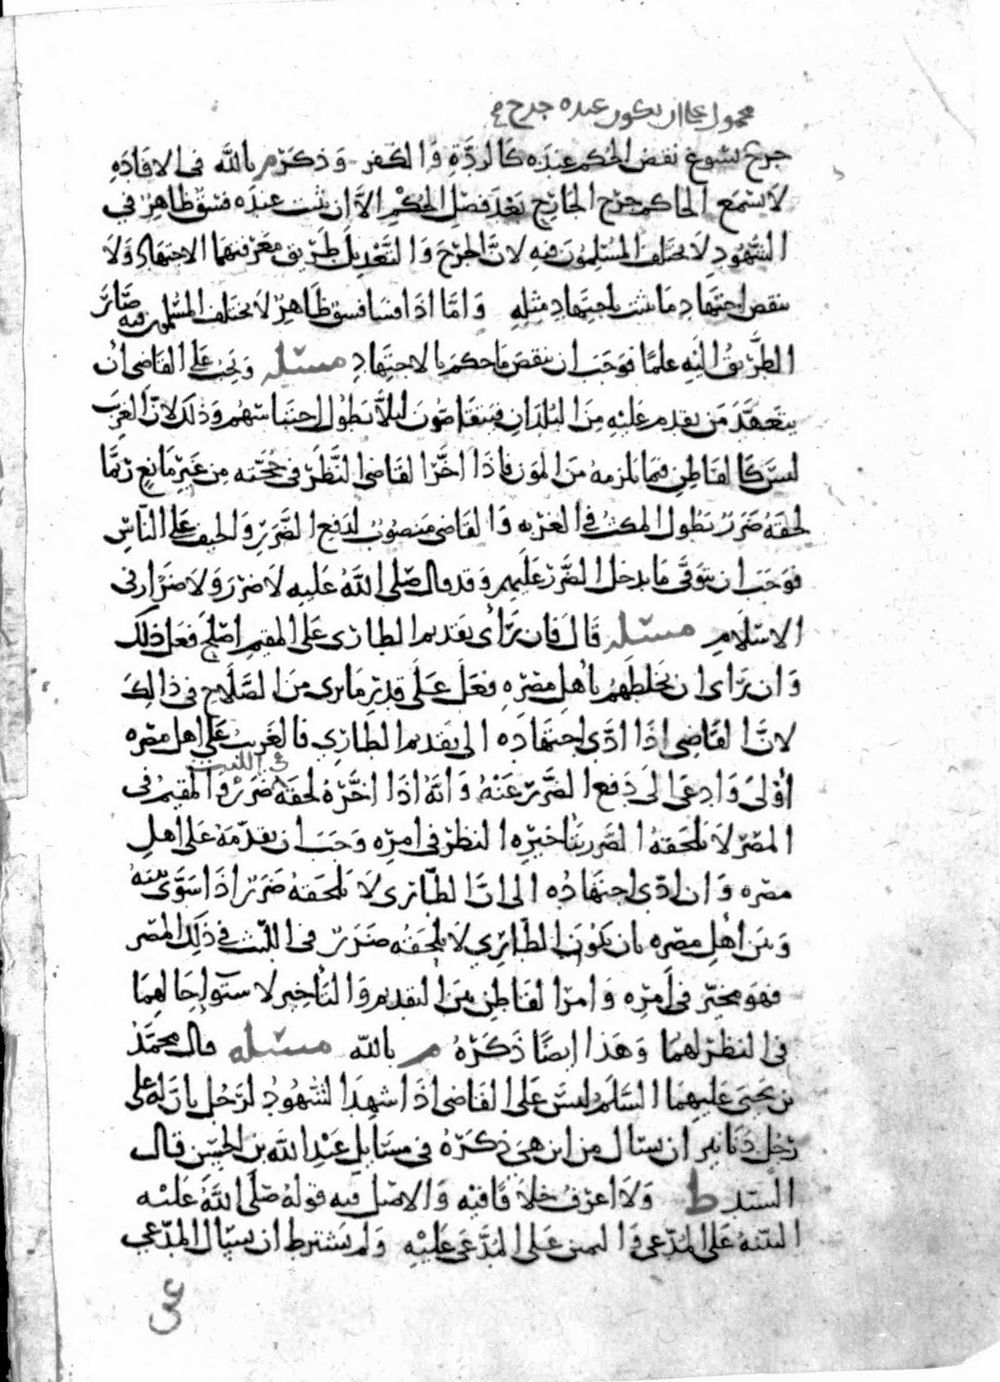 محمول على ان يكون عنده جرح
جرح يسوغ نقض الحكم عنده كالردَّةِ وَالكفر وَذكرَ م بالله فى الافادَهِ
لاَ يسْمَع الحاكم جرْح الجارِح بَعْدَ فَصْلِ الحُكمِ الاَّ ان يثبت عندَه فِسْقٌ ظاهِرٌ في
الشهُودِ لاَ يختلف المُسْلِمُونَ فيهِ لانَّ الجرْحَ وَالتَّعْدِيل طَرِيق مَعْرفتهما الاجتهَادُ وَلاَ
ينقض اجتهَاد مَا ثبت باجتِهَادٍ مثلِهِ وَامَّا اذا فسَا فسق ظاهِرٌ لاَ يختلف المسْلمون فيه صَارَ
الطَّرِيقُ اليْهِ علمًا فوَجَبَ ان ينقضَ مَا حكمَ بالاجتِهَادِ مسئله وَيجبُ عَلى القاضِى أن
يتعهَّدَ مَن يقدم عَليْهِ مِنَ البُلدَانِ فيتقاضُونَ ليلاَّ تطُول احتباسهُم وَذلكَ لانَّ الغريبَ
ليسَ كالقاطِنِ فيمَا يلزمهُ مِنَ المُؤَن فاذَا اخَّرَ القَاضِى النَّظَرَ فى حُجّته مِن غيْرِ مَانعٍ ربَّمَا
لحقهُ ضَرَرٌ بطُول المكث فى الغرْبه وَالقاضى مَنصُوبٌ لدَفع الضَّرَرِ وَالحيف عَلى النّاسِ
فوَجَبَ ان يتوَقَّى مَا يدخل الضَّرَرَ عَليهم وَقد قال صَلى اللَّهُ عَليهِ لاَ ضرَرَ وَلاَ ضرَارَ فى
الاسْلاَمِ مسئله قال فان رَّأى تقديم الطارى عَلى المقيم اصْلحَ فعَلَ ذلكَ
وَان رَّأى ان يخلطَهُمْ بأهْلِ مصْرِهِ فعَلَ عَلَى قدْرِ مَا يرى مِنَ الصَّلاَحِ فى ذالِكَ
لانَّ القَاضِى اذَا ادَّى اجتهَادُه الى تقديم الطارِي فالغريبُ عَلى اهل مصْره
أوْلى وَادعَى الى دَفع الضَّرَر عَنْهُ وَانَّهُ اذَا اخَّرَهُ لحقهُ ضَرَرٌ فى اللبث وَالمقيمُ فى
المصْرِ لاَ يلحقهُ الضرر بتأخيرِهِ النظرَ فى امرِه وَجَبَ ان يقدّمَهُ عَلى اهلِ
مصْره وَان ادَّى اجتهَادُه الى انَّ الطَّارى لاَ يلحقهُ ضَرَرٌ اذَا سَوَّى بينهُ
وَبين اهْلِ مصْره بان يكُونَ الطَّارِي لاَ يلحقه ضَرَرٌ فى اللبث فى ذلِك المصْر
فهوَ مخيّر فى أمرِه وَامرِ القاطِن بينَ التقديم وَالتأخِير لاستوَاءِ حَالهِمَا
فى النظر لهمَا وَهَذا ايضًا ذَكَرَهُ م بالله مسئله قال محمَّدُ
بن يحيىَ عَليهِمَا السَّلَم ليسَ عَلى القاضى اذَا شهدَ الشهُودُ لرَجُلٍ بانَّ له على
رَجُل دَنانير ان يسَال من اين هي ذكرَهُ فى مسَايل عَبْدِ اللَّه بن الحسَن قال
السَّيد ط وَلاَ اعرفُ خلاَفًا فيْهِ وَالاصْل فيه قولهُ صَلى اللَّهُ عَليْهِ
البيّنةُ عَلى المُدّعِى وَاليمين عَلى المُدَّعَى عَليْهِ وَلمْ يَشترط ان يسَال المدّعِي
عن